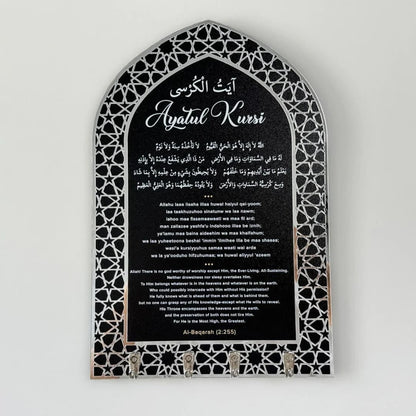 آيَتُ الْكُرْسِى
Ayatul Kursi
اَللهُ لَا إِلٰهَ إِلَّا هُوَ الْحَيُّ الْقَيُّومُ لَا تَأْخُذُهُ سِنَةٌ وَلَا نَوْمٌ
لَهُ مَا فِي السَّمَاوَاتِ وَمَا فِي الْأَرْضِ مَنْ ذَا الَّذِي يَشْفَعُ عِنْدَهُ إِلَّا بِإِذْنِهِ
يَعْلَمُ مَا بَيْنَ أَيْدِيهِمْ وَمَا خَلْفَهُمْ وَلَا يُحِيطُونَ بِشَيْءٍ مِنْ عِلْمِهِ إِلَّا بِمَا شَاءَ
وَسِعَ كُرْسِيُّهُ السَّمَاوَاتِ وَالْأَرْضَ وَلَا يَئُودُهُ حِفْظُهُمَا وَهُوَ الْعَلِيُّ الْعَظِيمُ
Allahu laaa ilaaha illaa huwal haiyul qai-yoom;
laa taakhuzuhoo sinatunw wa laa nawm;
lahoo maa fissamaawaati wa maa fil ard;
man zallazee yashfa'u indahooo illaa be iznih;
ya'lamu maa baina aideehim wa maa khalfahum;
wa laa yuheetoona beshai 'immin 'ilmihee illa be maa shaaa;
wasi'a kursiyyuhus samaa waati wal arda
wa la ya'ooduho hifzuhumaa; wa huwal aliyyul 'azeem
Allah! There is no god worthy of worship except Him, the Ever-Living, All-Sustaining.
Neither drowsiness nor sleep overtakes Him.
To Him belongs whatever is in the heavens and whatever is on the earth.
Who could possibly intercede with Him without His permission?
He fully knows what is ahead of them and what is behind them,
but no one can grasp any of His knowledge-except what He wills to reveal.
His Throne encompasses the heavens and the earth,
and the preservation of both does not tire Him.
For He is the Most High, the Greatest.
Al-Baqarah (2:255)